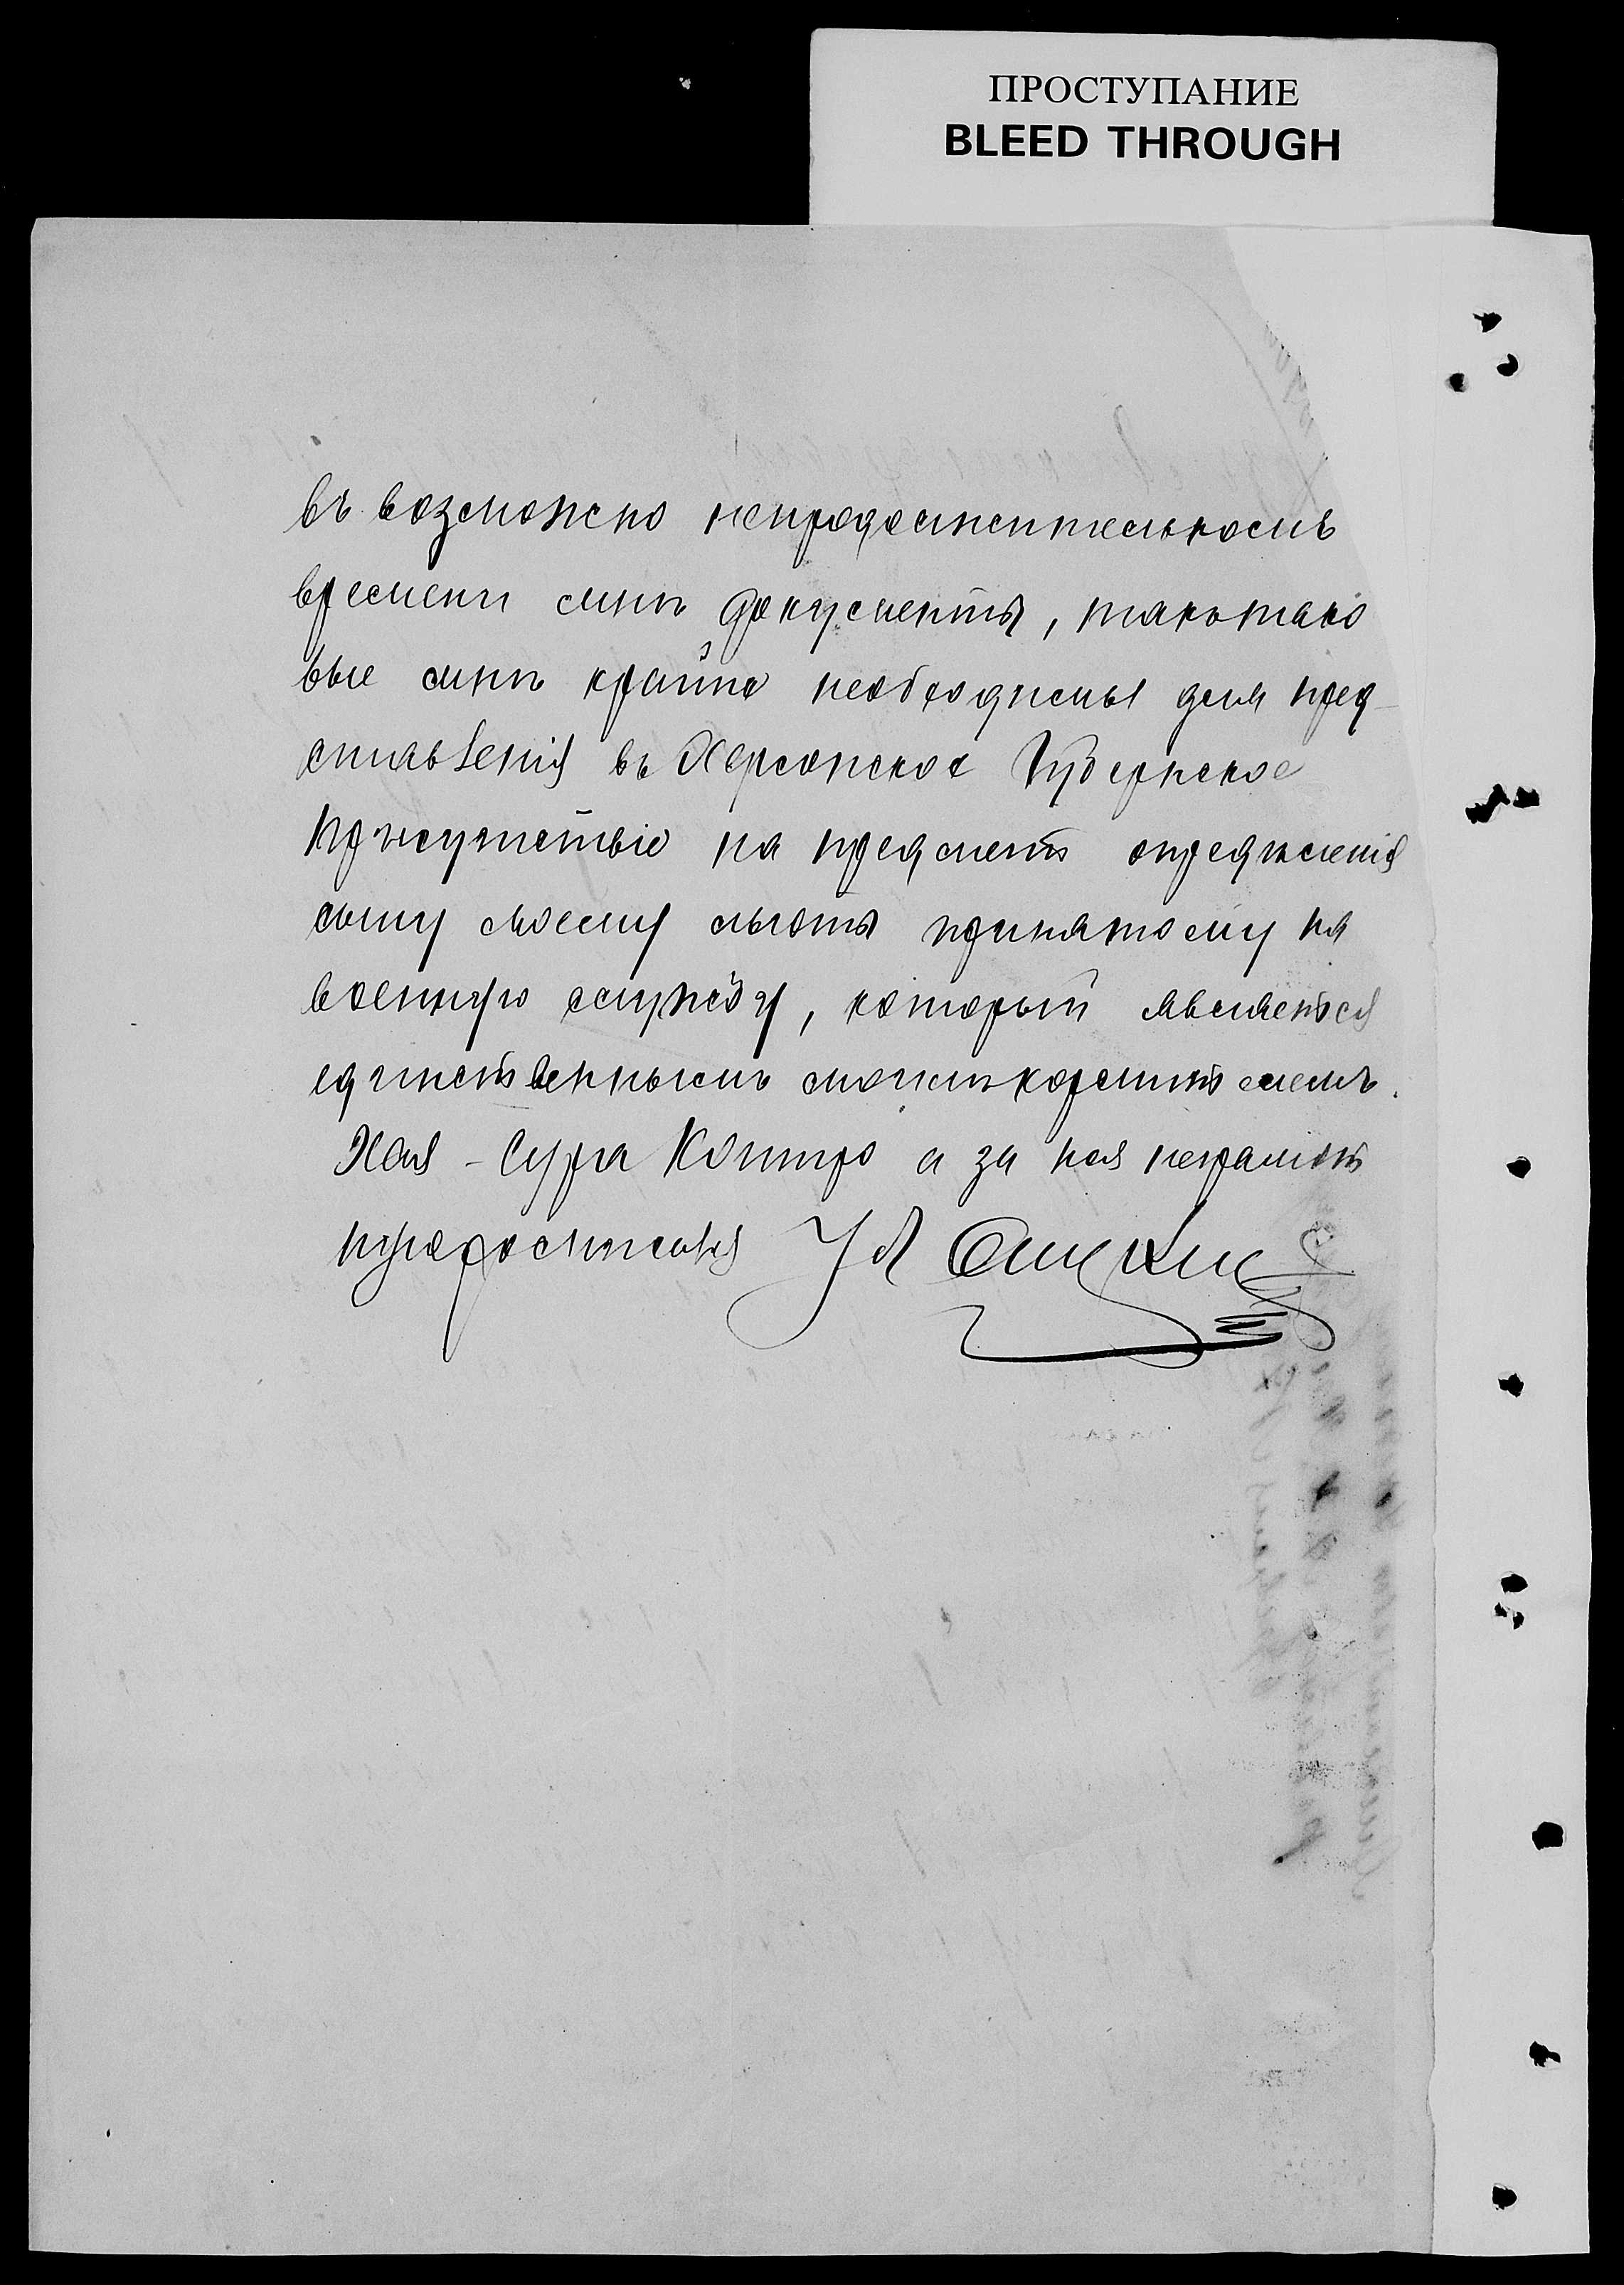 ПРОСТУПАНИЕ
BLEED THROUGH
въ возможно непродолжительномъ
времени мнѣ документы, такъ тако
вые мнѣ крайне необходимы для пред-
ставленія въ Херсонское Губернское
Присутствіе на предметъ опредѣленія
сыну моему льготы принятому на
военную службу, который является
единственнымъ моимъ кормителемъ.
Хая - Сура а за нея неграмот